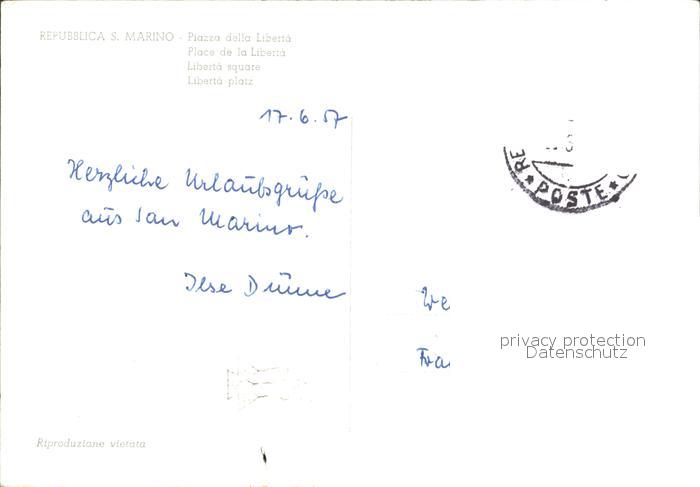 REPUBBLICA S. MARINO - Piazza della Libertà
Place de la Libertà
Libertà square
Libertà platz
17.6.57
Herzliche Urlaubsgrüße
aus San Marino.
Ilse
RE
POSTE
privacy protection
Datenschutz
Riproduzione vietata